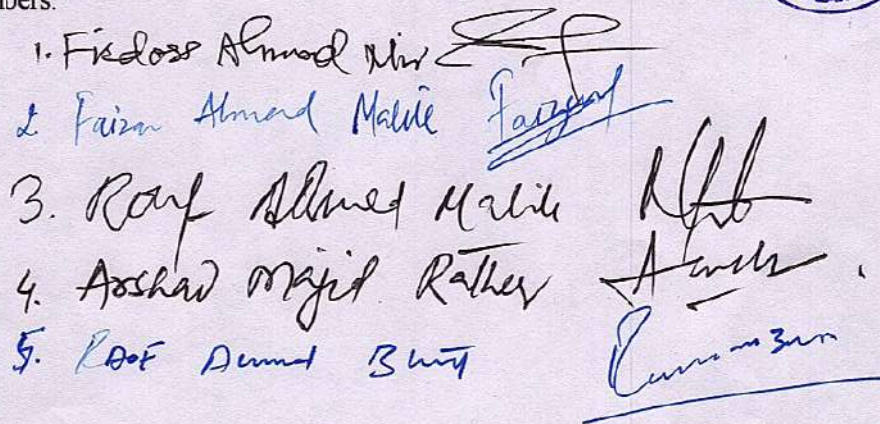 bers.
1. Firdoss Ahmad Mir
2. Faizan Ahmad Malik Faizan
3. Rouf Ahmed Malik
4. Arshad Majid Rather
5. Raof Ahmad Bhat